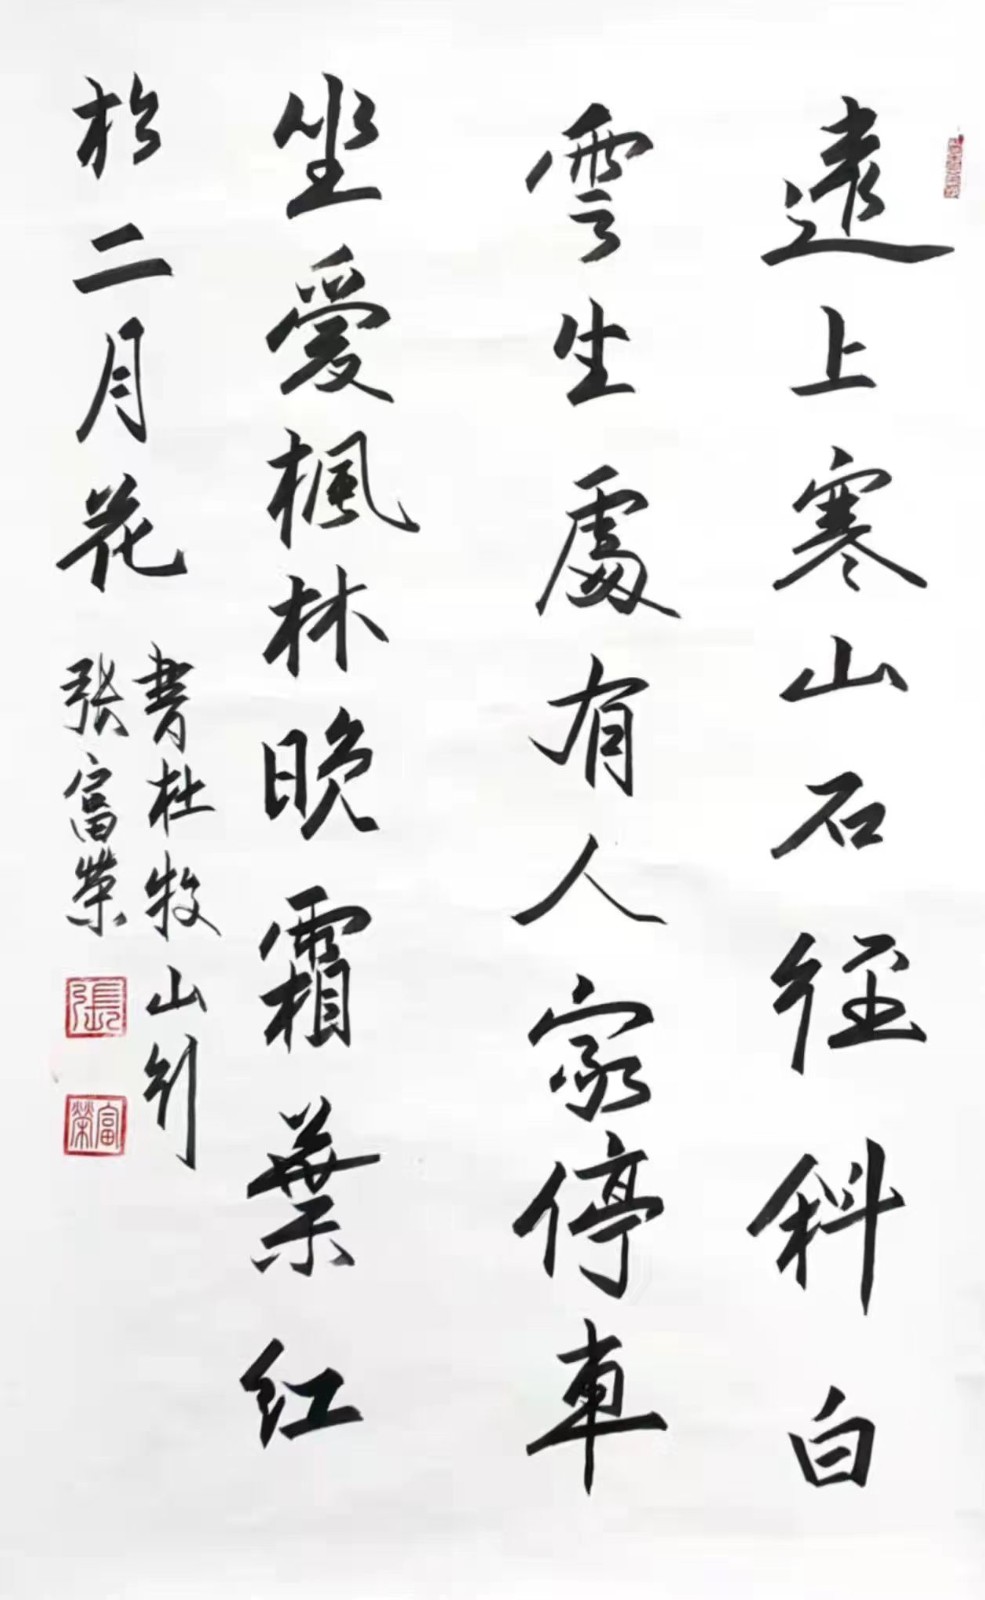 遠上寒山石徑斜白
雲生處有人家停車
坐愛楓林晚霜葉红
於二月花
書杜牧山行
张富榮
張
富榮